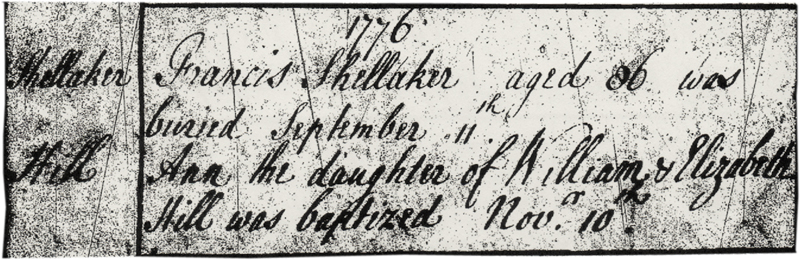 1776.
Shellaker Francis Shellaker aged 86 was
buried September 11th
Hill Ann the daughter of William & Elizabeth
Hill was baptized Novr. 10th.